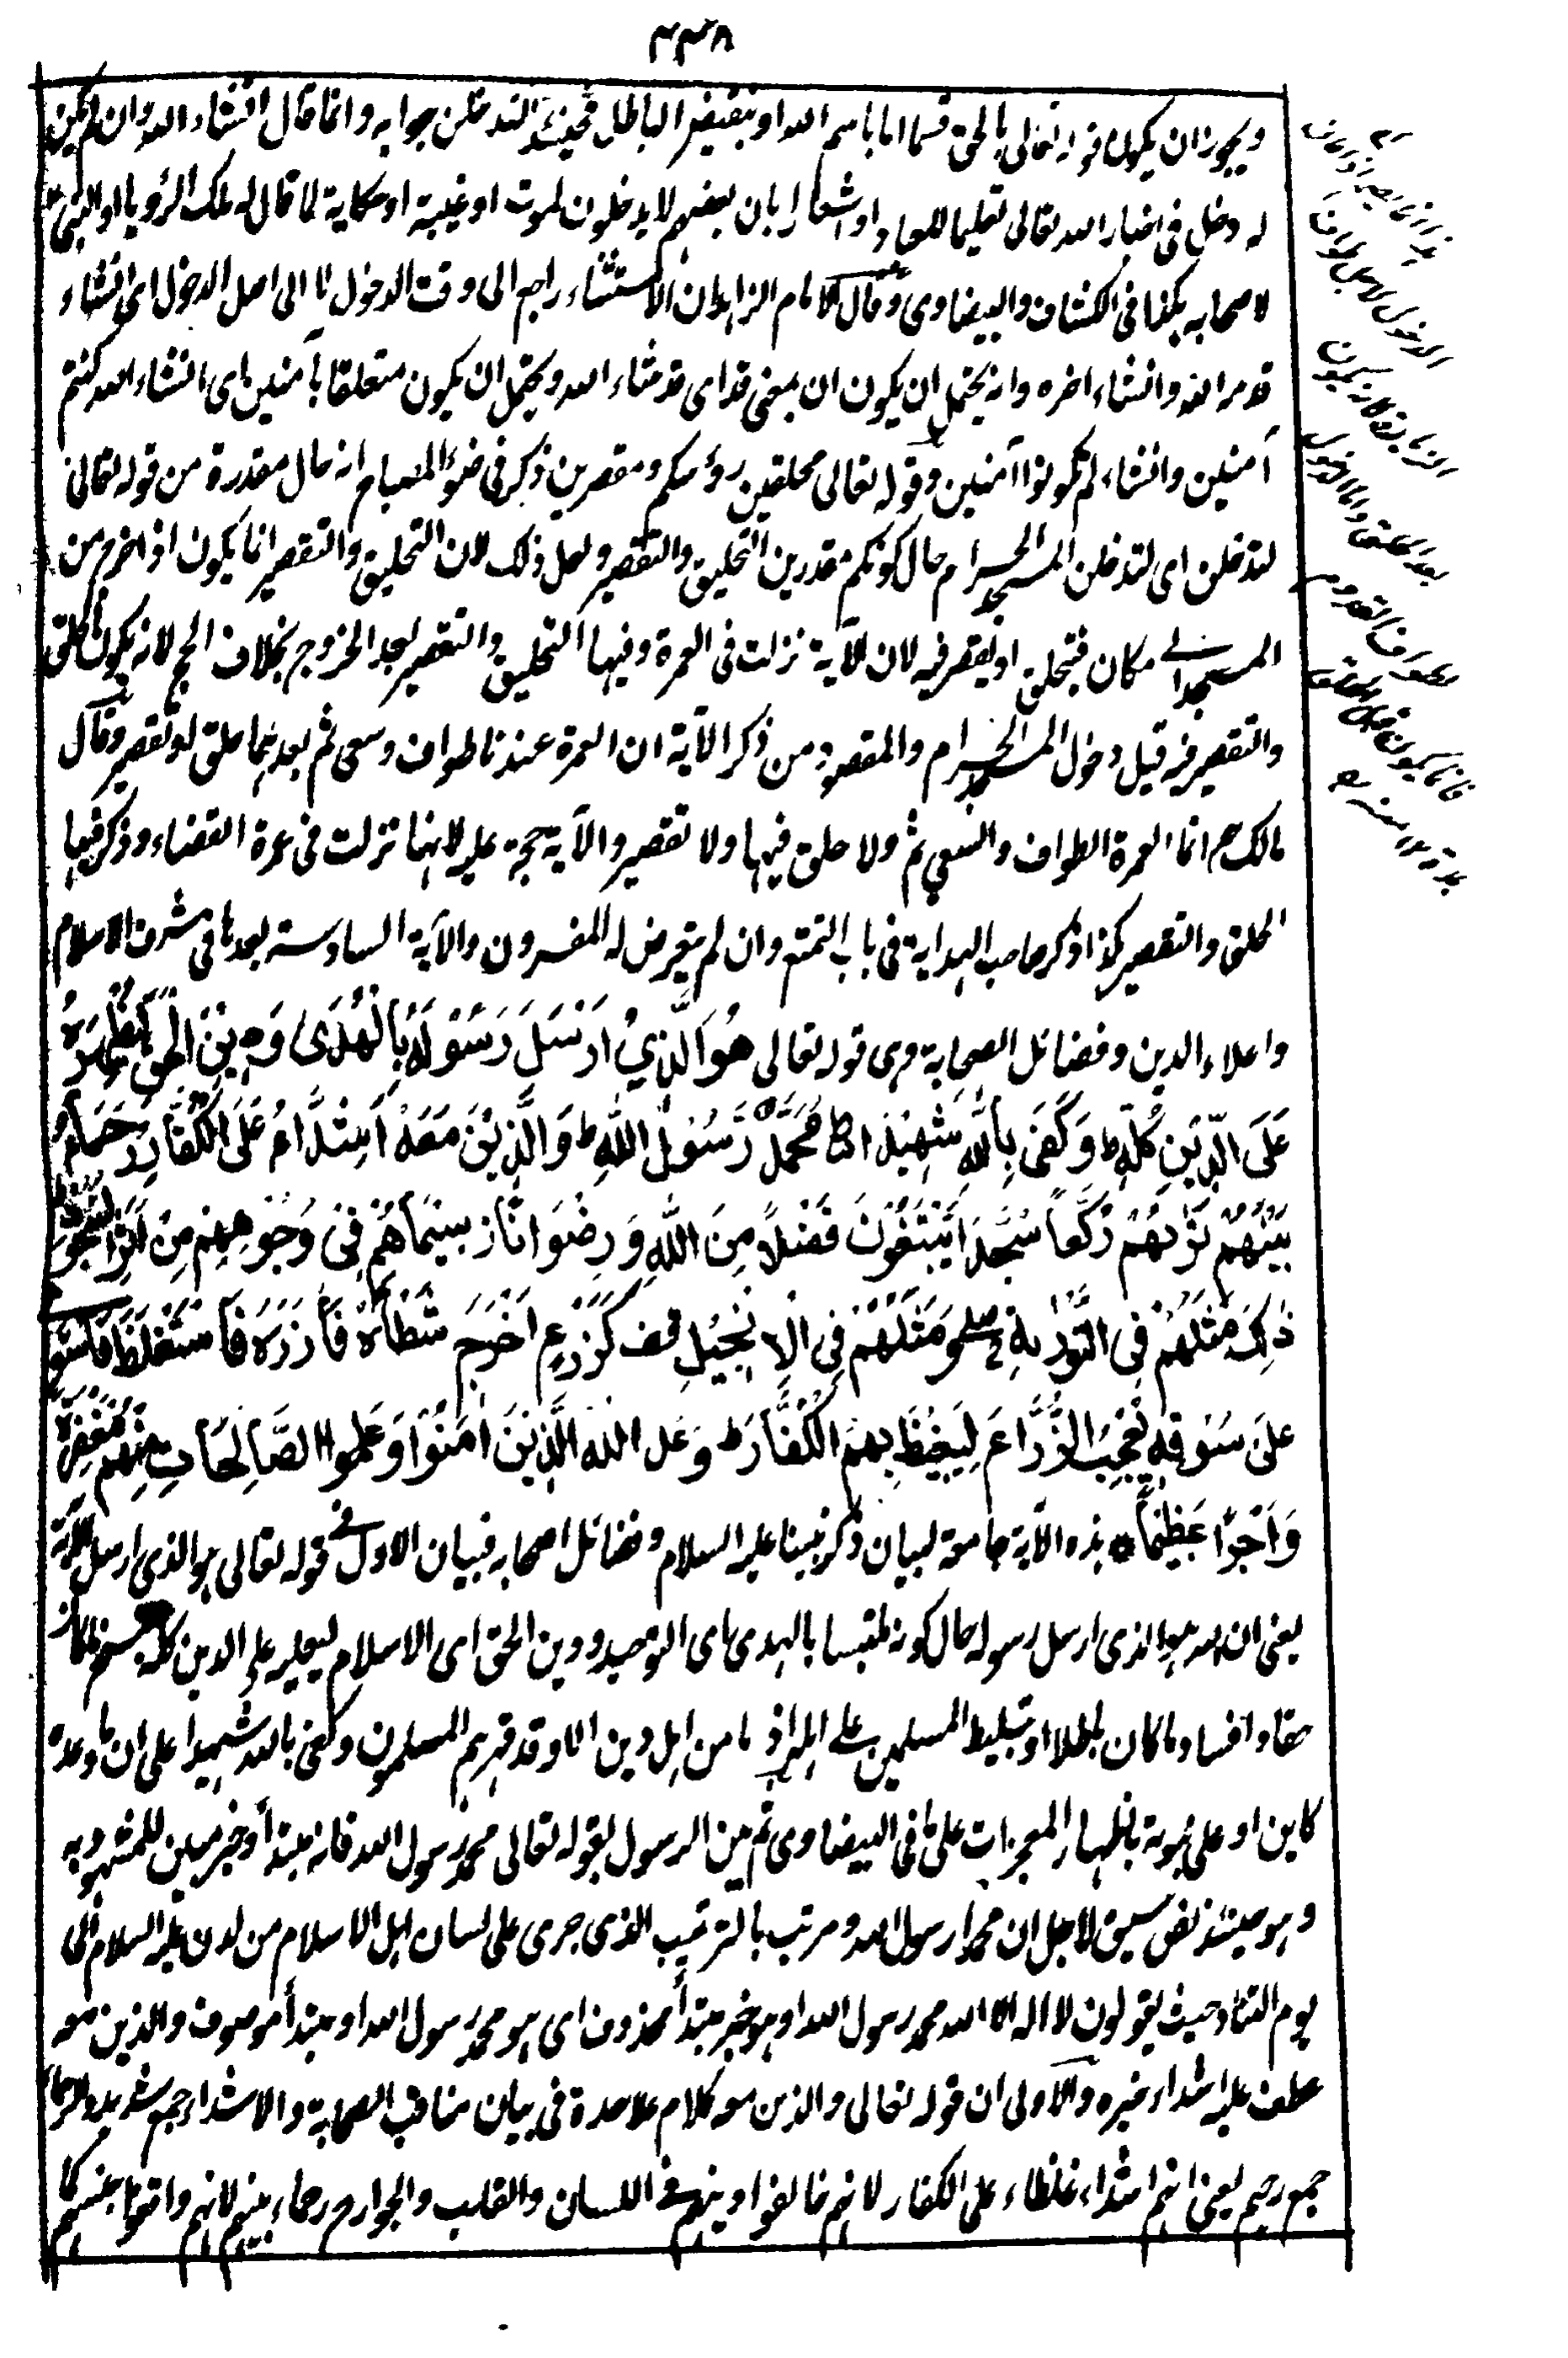 ويجوز ان يكون قوله تعالى بالحق قسما اما باسم الله او بنقيض الباطل فحينئذ لتدخلن جوابه وانما قال انشاء الله وان لم يكن
له دخل فى اخبار الله تعالى تعليما للعباد او اشعارا بان بعضهم لا يدخلون لموت او غيبة او حكاية لما قال له ملك الرؤيا او النبى
لاصحابه هكذا فى الكشاف والبيضاوى وقال الامام الزاهد ان الاستثناء راجع الى وقت الدخول لا الى اصل الدخول اى انشاء
قدمه الله وانشاء اخره وانه يحتمل ان يكون ان بمعنى قد اى قد شاء الله ويحتمل ان يكون متعلقا بآمنين اى انشاء الله كنتم
آمنين وانشاء لم تكونوا آمنين وقوله تعالى محلقين رؤسكم ومقصرين ذكر فى ضوء المصباح انه حال مقدرة من قوله تعالى
لتدخلن اى لتدخلن المسجد الحرام حال كونكم مقدرين التحليق والتقصير ولعل ذلك لان التحليق والتقصير انما يكون اذا خرج من
المسجد الى مكان فيتحلق او يقصر فيه لان الآية نزلت فى العمرة وفيها التحليق والتقصير بعد الخروج بخلاف الحج لانه يكون الحلق
والتقصير فيه قبل دخول المسجد الحرام والمقصود من ذكر الآية ان العمرة عندنا طواف وسعى ثم بعدهما حلق او تقصير وقال
مالك رح انما العمرة الطواف والسعى ثم ولا حلق فيها ولا تقصير والآية حجة عليه لانها نزلت فى عمرة القضاء وذكر فيها
الحلق والتقصير كذا ذكر صاحب الهداية فى باب التمتع وان لم يتعرض له المفسرون والآية السادسة بعدها فى شرف الاسلام
واعلاء الدين وفضائل الصحابة وهى قوله تعالى هُوَ الَّذِيْ اَرْسَلَ رَسُوْلَهٗ بِالْهُدٰى وَدِيْنِ الْحَقِّ لِيُظْهِرَهٗ
عَلَى الدِّيْنِ كُلِّهٖ ط وَكَفٰى بِاللّٰهِ شَهِيْدًا ط مُحَمَّدٌ رَّسُوْلُ اللّٰهِ ط وَالَّذِيْنَ مَعَهٗ اَشِدَّاءُ عَلَى الْكُفَّارِ رُحَمَاءُ
بَيْنَهُمْ تَرٰىهُمْ رُكَّعًا سُجَّدًا يَّبْتَغُوْنَ فَضْلًا مِنَ اللّٰهِ وَرِضْوَانًا ز سِيْمَاهُمْ فِىْ وُجُوْهِهِمْ مِنْ اَثَرِ السُّجُوْدِ
ذٰلِكَ مَثَلُهُمْ فِى التَّوْرٰىةِ صلے وَمَثَلُهُمْ فِى الْاِنْجِيْلِ قف كَزَرْعٍ اَخْرَجَ شَطْاَهٗ فَاٰزَرَهٗ فَاسْتَغْلَظَ فَاسْتَوٰى
عَلٰى سُوْقِهٖ يُعْجِبُ الزُّرَّاعَ لِيَغِيْظَ بِهِمُ الْكُفَّارَ ط وَعَدَ اللّٰهُ الَّذِيْنَ اٰمَنُوْا وَعَمِلُوا الصَّالِحَاتِ مِنْهُمْ مَغْفِرَةً
وَاَجْرًا عَظِيْمًا هذه الآية جامعة لبيان ذكر نبينا عليه السلام وفضائل اصحابه فبيان الاول فى قوله تعالى هو الذى ارسل الآية
يعنى ان الله هو الذى ارسل رسوله حال كونه ملتبسا بالهدى اى التوحيد ودين الحق اى الاسلام ليعليه على الدين كله بنسخ ما كان
حقا وافساد ما كان باطلا او تسليط المسلمين على اهله اذ ما من اهل دين الا وقد قهرهم المسلمون وكفى بالله شهيدا على ان ما وعده
كاين او على نبوته باظهار المعجزات على ما فى البيضاوى ثم بين الرسول بقوله تعالى محمد رسول الله فانه مبتدأ وخبر مبين للمشهود به
وهو حينئذ نص سيق لاجل ان محمدا رسول الله ومرتب بالترتيب الذى جرى على لسان اهل الاسلام من لدن عليه السلام الى
يوم التناد حيث يقولون لا اله الا الله محمد رسول الله او هو خبر مبتدأ محذوف اى هو محمد رسول الله او مبتدأ موصوف والذين معه
عطف عليه اشداء خبره والاولى ان قوله تعالى والذين معه كلام علاحدة فى بيان مناقب الصحابة والاشداء جمع شديد والرحماء
جمع رحيم يعنى انهم اشداء غلظاء على الكفار لانهم خالفوا دينهم فى اللسان والقلب والجوارح رحماء بينهم لانهم وافقوا جنسهم كما